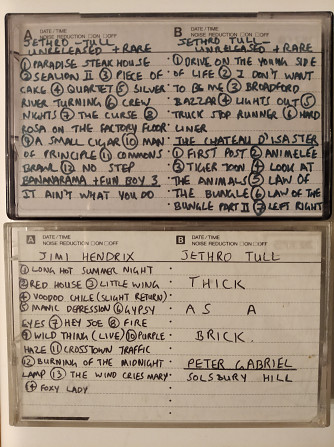 A DATE/TIME
NOISE REDUCTION ○ON ○OFF
JETHRO - TULL
UNRELEASED + RARE
① PARADISE STEAK HOUSE
② SEALION II ③ PIECE OF
CAKE ④ QUARTET ⑤ SILVER
RIVER TURNING ⑥ CREW
NIGHTS ⑦ THE CURSE ⑧
ROSA ON THE FACTORY FLOOR
⑨ A SMALL CIGAR ⑩ MAN
OF PRINCIPLE ⑪ COMMONS
BRAWL ⑫ NO STEP
BANANARAMA + FUN BOY 3
IT AIN'T WHAT YOU DO
B DATE/TIME
NOISE REDUCTION ○ON ○OFF
JETHRO TULL -
UNRELEASED + RARE
① DRIVE ON THE YOUNG SIDE
OF LIFE ② I DON'T WANT
TO BE ME ③ BROADFORD
BAZZAR ④ LIGHTS OUT ⑤
TRUCK STOP RUNNER ⑥ HARD
LINER
THE CHATEAU D'ISASTER
① FIRST POST ② ANIMELEE
③ TIGER TOON ④ LOOK AT
THE ANIMALS ⑤ LAW OF
THE BUNGLE ⑥ LAW OF THE
BUNGLE PART II ⑦ LEFT RIGHT
A DATE/TIME
NOISE REDUCTION ○ON ○OFF
JIMI HENDRIX
① LONG HOT SUMMER NIGHT
② RED HOUSE ③ LITTLE WING
④ VOODOO CHILE (SLIGHT RETURN)
⑤ MANIC DEPRESSION ⑥ GYPSY
EYES ⑦ HEY JOE ⑧ FIRE
⑨ WILD THING (LIVE) ⑩ PURPLE
HAZE ⑪ CROSSTOWN TRAFFIC
⑫ BURNING OF THE MIDNIGHT
LAMP ⑬ THE WIND CRIES MARY
⑭ FOXY LADY
B DATE/TIME
NOISE REDUCTION ○ON ○OFF
JETHRO TULL
THICK
AS A
BRICK.
PETER GABRIEL
SOLSBURY HILL